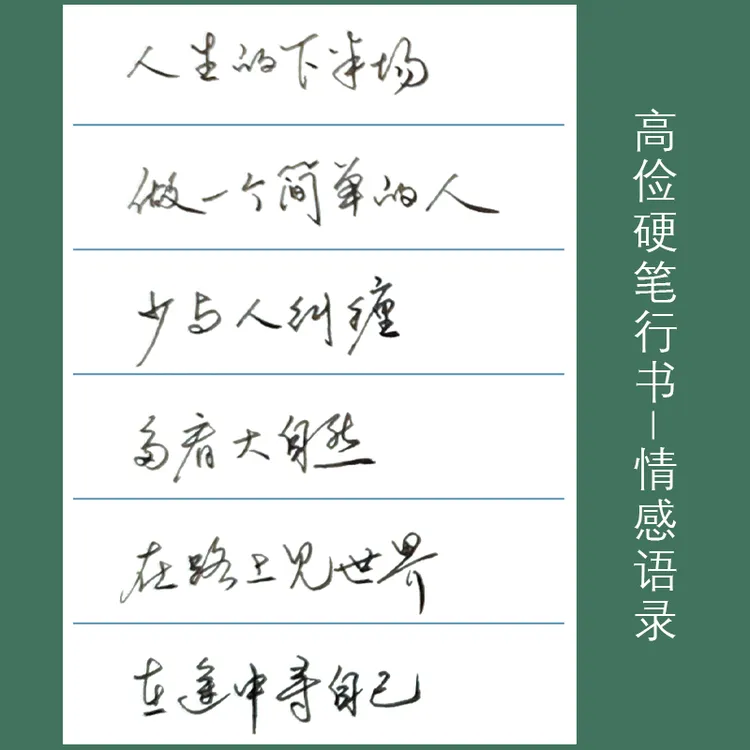 人生的下半场
做一个简单的人
少与人纠缠
多看大自然
在路上见世界
在途中寻自己
高俭硬笔行书—情感语录